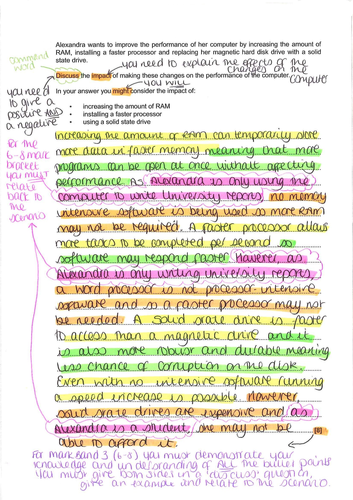 Alexandra wants to improve the performance of her computer by increasing the amount of
RAM, installing a faster processor and replacing her magnetic hard disk drive with a solid
state drive.
command
word
you need to explain the effects of
the changes on the
computer
Discuss the impact of making these changes on the performance of the computer.
you need
to give a
positive AND
a negative
you will
In your answer you might consider the impact of:
• increasing the amount of RAM
• installing a faster processor
• using a solid state drive
For the
6-8 mark
bracket
you must
relate
back to
the
scenario
Increasing the amount of RAM can temporarily store
more data in faster memory meaning that more
programs can be open at once without affecting
performance. As Alexandra is only using the
computer to write University reports, no memory
intensive software is being used so more RAM
may not be required. A faster processor allows
more tasks to be completed per second so
software may respond faster. However, as
Alexandra is only writing University reports,
a word processor is not processor intensive
software and so a faster processor may not
be needed. A solid state drive is faster
to access than a magnetic drive and it
is also more robust and durable meaning
less chance of corruption on the disk.
Even with no intensive software running
a speed increase is possible. However,
solid state drives are expensive and as
Alexandra is a student, she may not be
able to afford it.
[8]
For mark Band 3 (6-8) you must demonstrate your
knowledge and understanding of ALL the bullet points
You must give both sides in a 'discuss' question,
give an example and relate to the scenario.